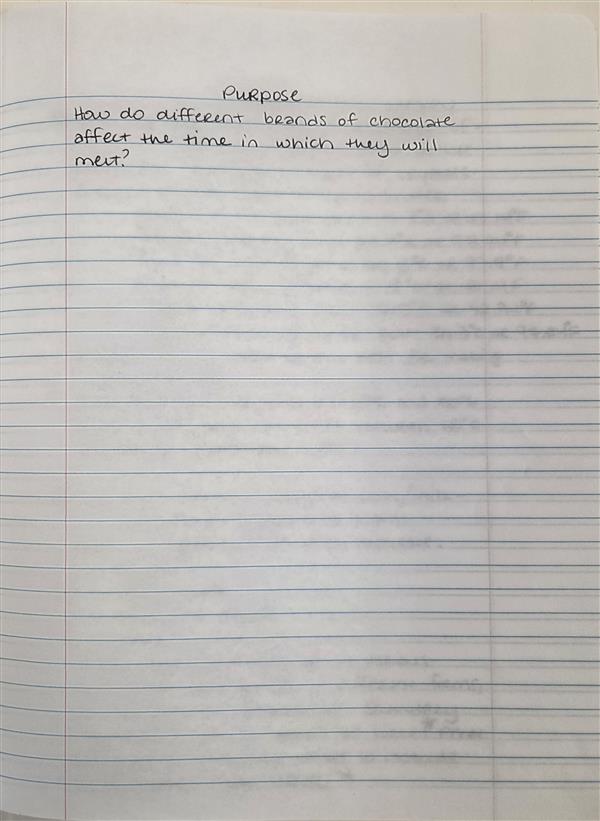 Purpose
How do different brands of chocolate
affect the time in which they will
melt?